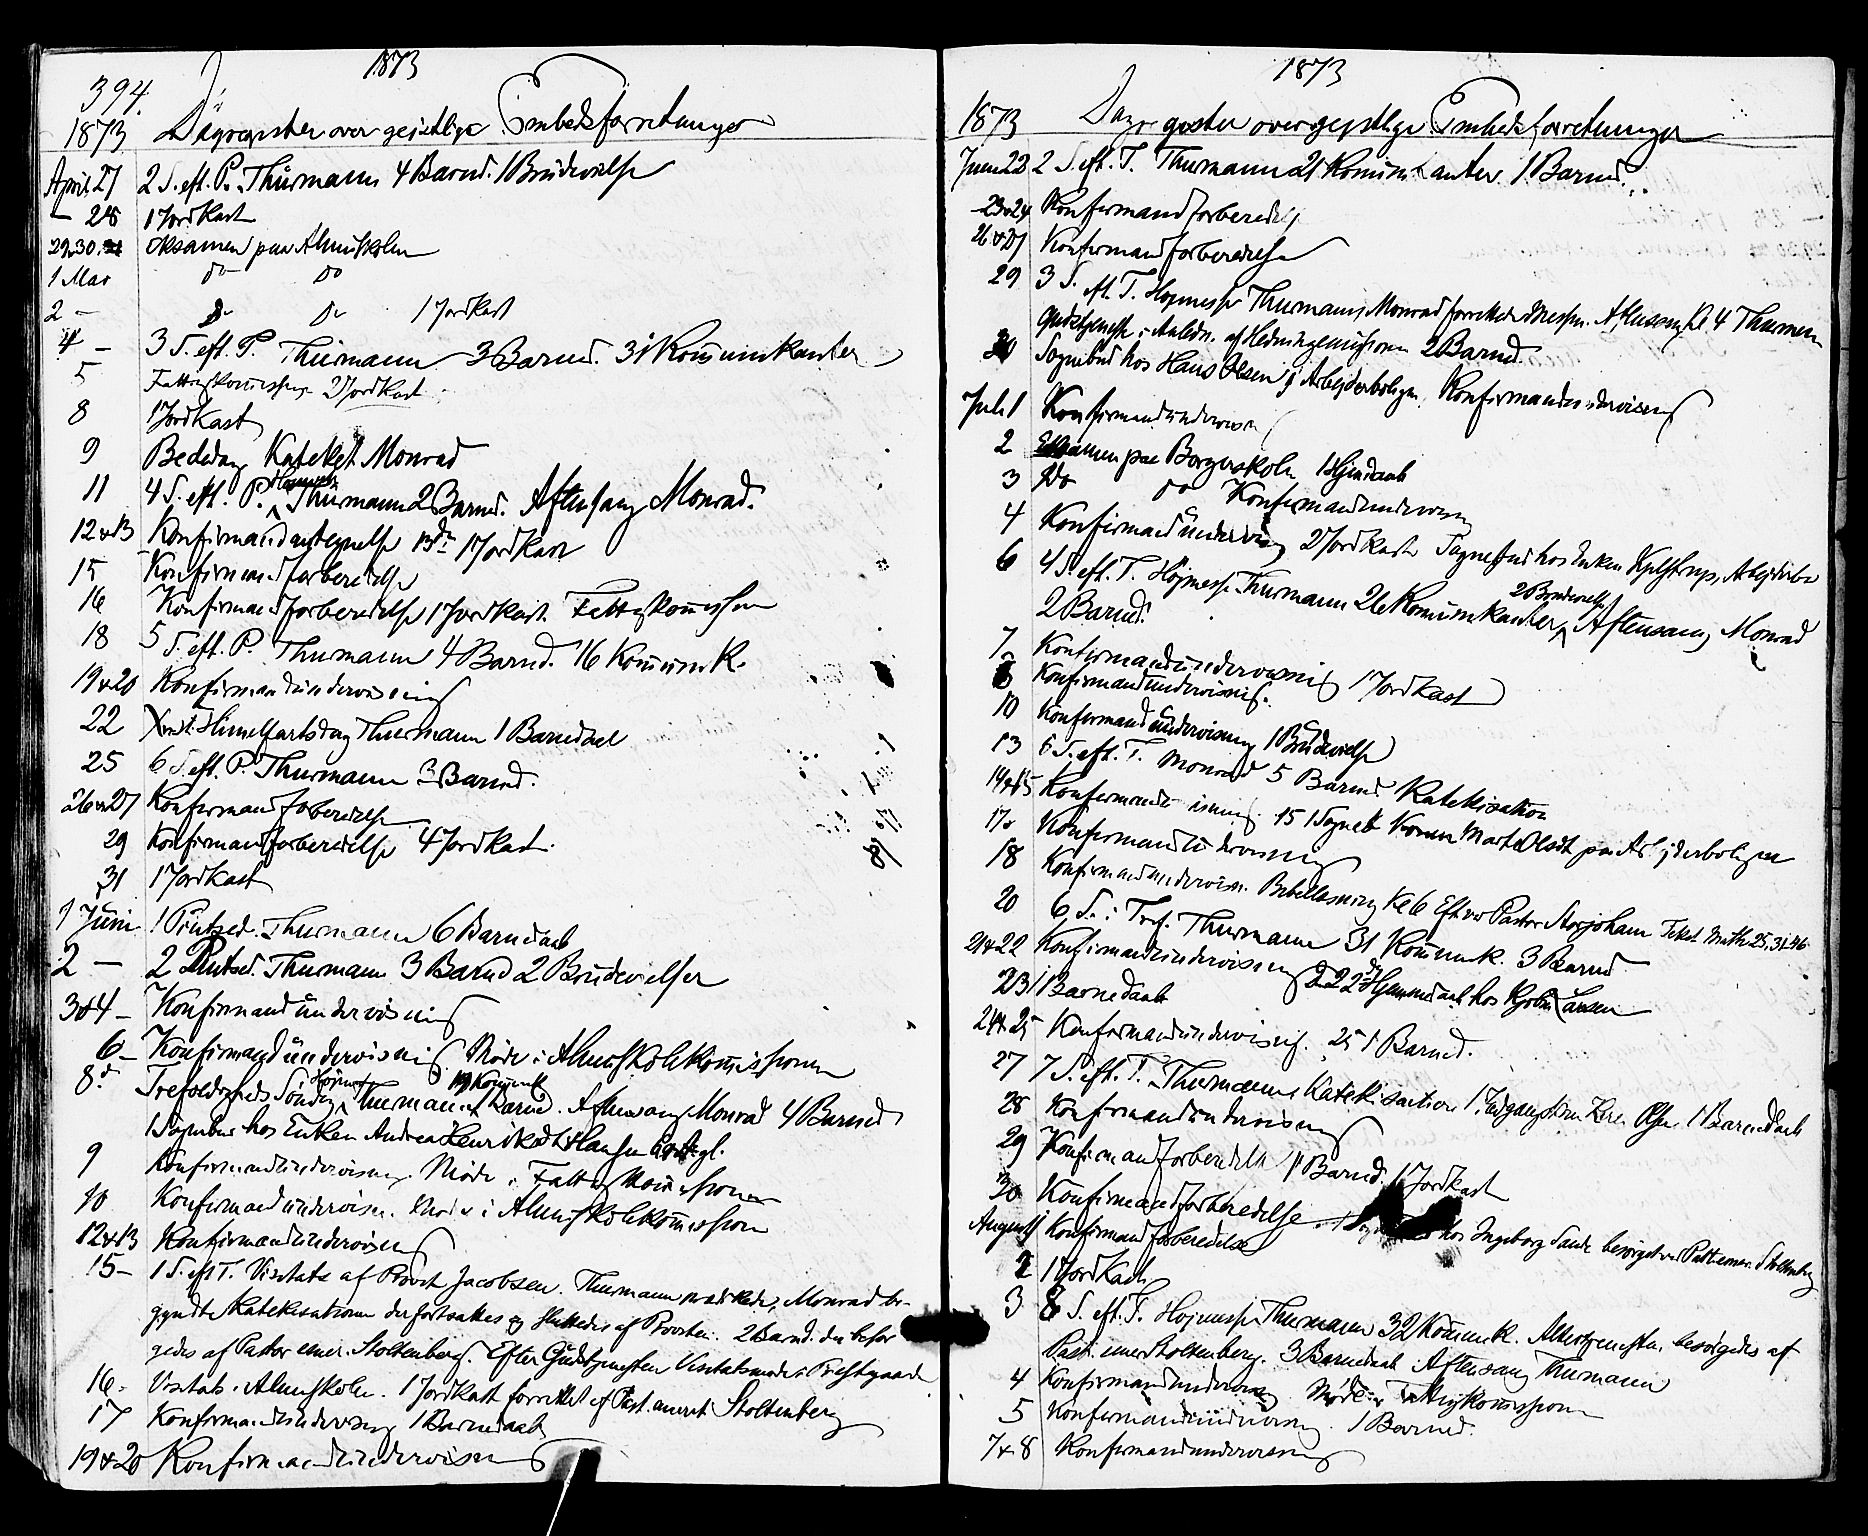 1873
394.
1873 Dagregister over geistlige Embedsforretninger
April 27 2 S. eft. P. Thurmann 4 Barnd. 1 Brudevielse
— 28 1 Jordkast
29, 30, Eksamen paa Almuskolen
1 Mai do do
2 — do do 1 Jordkast
4 — 3 S. eft. P. Thurmann 3 Barnd. 31 Kommunikanter
5 Fattigkommission 2 Jordkast
8 1 Jordkast
9 Bededag Kateket Monrad
11 4 S. eft. P. Høimesse Thurmann 2 Barnd. Aftensang Monrad.
12 & 13 Konfirmandantegnelse 13de 1 Jordkast
15 Konfirmandforberedelse
16 Konfirmandforberedelse 1 Jordkast. Fattigkommission
18 5 S. eft. P. Thurmann 4 Barnd. 16 Kommunik.
19 & 20 Konfirmandundervisning
22 Krist. Himmelfartsdag Thurmann 1 Barnedaab
25 6 S. eft. P. Thurmann 3 Barnd.
26 & 27 Konfirmandforberedelse
29 Konfirmandforberedelse 4 Jordkast.
31 1 Jordkast
1 Juni 1 Pintsed. Thurmann 6 Barnedaab
2 — 2 Pintsed. Thurmann 3 Barnd 2 Brudevielser
3 & 4 — Konfirmandundervisning
6 — Konfirmandundervisning. Møde i Almuskolekommissionen
8de Trefoldigheds Søndag Høimes Thurmann Kommunik Barnd. Aftensang Monrad 4 Barned
1 Sognebud hos Enken Andrea Henrikdt Hansen
9 Konfirmandundervisning. Møde i Fattigkommissionen
10 Konfirmandundervisn. Møde i Almuskolekommission
12 & 13 Konfirmandundervisning
15 — 1 S. eft T. Visitats af Provst Jacobsen. Thurmann prædikede, Monrad be-
gyndte Katekisationen der fortsattes og sluttedes af Provsten. 2 Barnd. der besør
gedes af Pastor emer. Stoltenberg. Efter Gudstjenesten Visitatsmøde i Præstgaarden
16 — Visitats i Almuskolen. 1 Jordkast forrettet af Past. emerit. Stoltenberg
17 Konfirmandundervisning 1 Barnedaab
19 & 20 Konfirmandundervisning
1873
1873 Dagregister over geistlige Embedsforretninger
Juni 22 2 S. eft. T. Thurmann 21 Kommunikanter. 1 Barnd.
23 & 24 Konfirmandforberedels
26 & 27 Konfirmandforberedelse
29 3 S. eft. T. Høimesse Thurmann, Monrad forrettede Messen. Aftensang Kl. 4 Thurmann
Gudstjeneste i Anledn. af Hedningemissionen 2 Barnd.
30 Sognebud hos Hans Olsen i Arbejderboligen, Konfirmandundervisning
Juli 1 Konfirmandundervisn
2 Eksamen paa Borgerskolen 1 Hjemdaab
3 Do do Konfirmandundervisning
4 Konfirmandundervisning 2 Jordkast Sognebud hos Enken Kjelstrup, Arbejderbo
6 4 S. eft. T. Høimesse Thurmann 26 Kommunikanter, 2 Brudevielse Aftensang Monrad
2 Barnd.
7 Konfirmandundervisning 1 Jordkast
8 Konfirmandundervisning.
10 Konfirmandundervisning 1 Brudevielse
13 5 S. eft. T. Monrad 5 Barnd. Katekisation
14 & 15 Konfirmandu isning. 15 1 Sogneb Konen Marte Olsdt paa Arbejderboligen
17 Konfirmandundervisning
18 Konfirmandundervisn. Bibellæsning Kl 6 Eft ved Pastor Storjohann Tekst Math. 25, 31-46.
20 6 S. i Tref. Thurmann 31 Kommunk. 3 Barnd.
21 & 22 Konfirmandundervisning Den 22de Hjemmedaab hos Larsen
23 1 Barnedaab
24 & 25 Konfirmandundervisnig. 25 1 Barned.
27 7 S. eft. T. Thurmann Katekisation 1 Indgangskone 1 Barnedaab
28 Konfirmandundervisning
29 Konfirmandforberedelse 1 Barnd. 1 Jordkast
30 Konfirmandforberedelse. 1 hos Ingeborg Sande besørget ved Past. emer. Stoltenberg
August 1 Konfirmandforberedelse
2 1 Jordkast
3 8 S. eft. T. Høimesse Thurmann 32 Kommunk. Altertjenesten besørgedes af
Past. emer Stoltenberg. 3 Barnedaab Aftensang Thurmann
4 Konfirmandundervisning Møde i Fattigkommissionen
5 Konfirmandundervisning 1 Barned.
7 & 8 Konfirmandundervisning